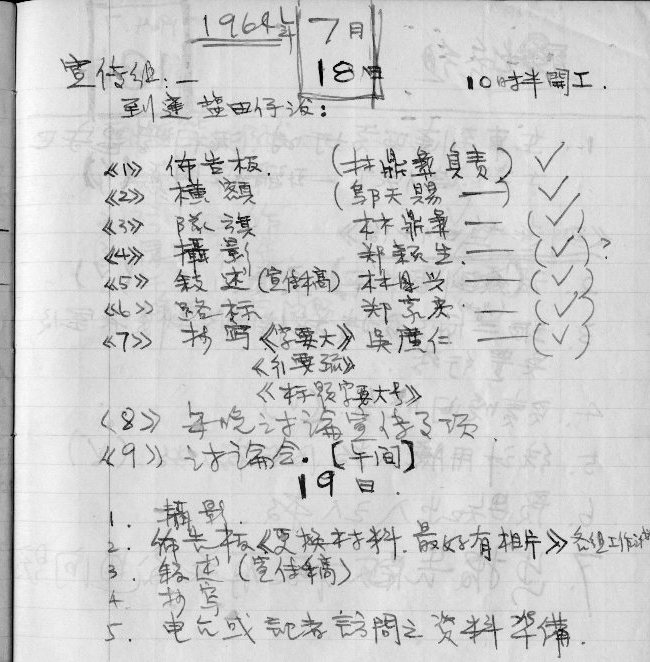 1964年 7月
18日
宣传组:— 10时半開工.
到達盐田仔後:
《1》 佈告板. (林鼎彝負責) ✓
《2》 橫額 (鄔天賜 —) ✓
《3》 隊旗 林鼎彝 — (✓)
《4》 攝影 郑毓生. — (✓)?
《5》 敍述 (宣传稿) 林 兴 — (✓)
《6》 路标 郑 — (✓)
《7》 抄写《字要大》 吳 仁 — (✓)
《行要疏》
《标题字要大号》
《8》 每晚讨論宣传事项
《9》 讨論会. [午间]
19日.
1. 攝影.
2. 佈告板《更换材料. 最好有相片》各组工作
3. 敍述 (宣传稿)
4. 抄写
5. 电台或記者訪問之資料準備.